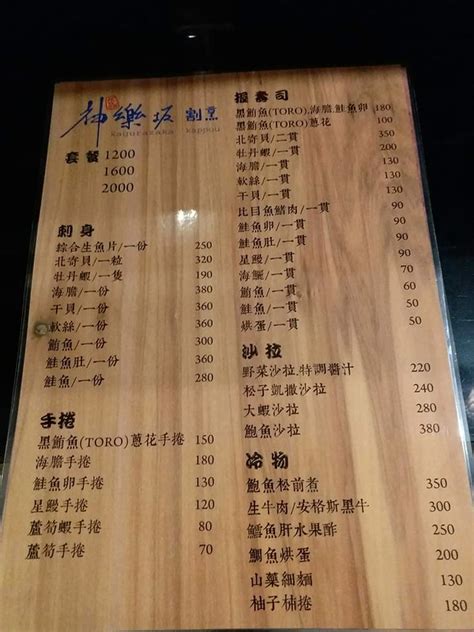 神樂坂 割烹
kagurazaka kappou
套餐 1200
1600
2000
刺身
綜合生魚片/一份 250
北奇貝/一粒 320
牡丹蝦/一隻 190
海膽/一份 380
干貝/一份 360
軟絲/一份 360
鮪魚/一份 300
鮭魚肚/一份 360
鮭魚/一份 280
手捲
黑鮪魚(TORO)蔥花手捲 150
海膽手捲 180
鮭魚卵手捲 130
星鰻手捲 120
蘆筍蝦手捲 80
蘆筍手捲 70
握壽司
黑鮪魚(TORO).海膽.鮭魚卵 180
黑鮪魚(TORO)蔥花 100
北奇貝/二貫 350
牡丹蝦/一貫 200
海膽/一貫 130
軟絲/一貫 130
干貝/一貫 130
比目魚鰭肉/一貫 90
鮭魚卵/一貫 90
鮭魚肚/一貫 90
星鰻/一貫 90
海鱺/一貫 70
鮪魚/一貫 60
鮭魚/一貫 50
烘蛋/一貫 50
沙拉
野菜沙拉.特調醬汁 220
松子凱撒沙拉 240
大蝦沙拉 280
鮑魚沙拉 380
冷物
鮑魚松前煮 350
生牛肉/安格斯黑牛 300
鱈魚肝水果酢 250
鯛魚烘蛋 200
山藥細麵 130
柚子柿捲 180